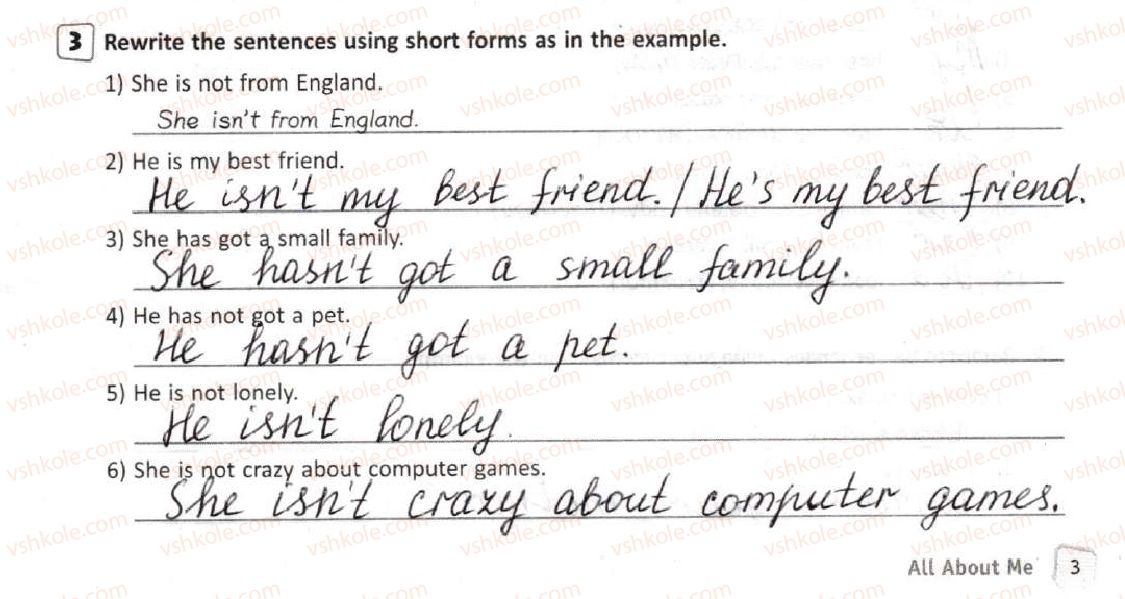 3 Rewrite the sentences using short forms as in the example.
1) She is not from England.
She isn't from England.
2) He is my best friend.
He isn't my best friend. / He's my best friend.
3) She has got a small family.
She hasn't got a small family.
4) He has not got a pet.
He hasn't got a pet.
5) He is not lonely.
He isn't lonely.
6) She is not crazy about computer games.
She isn't crazy about computer games.
All About Me 3
vshkole.com